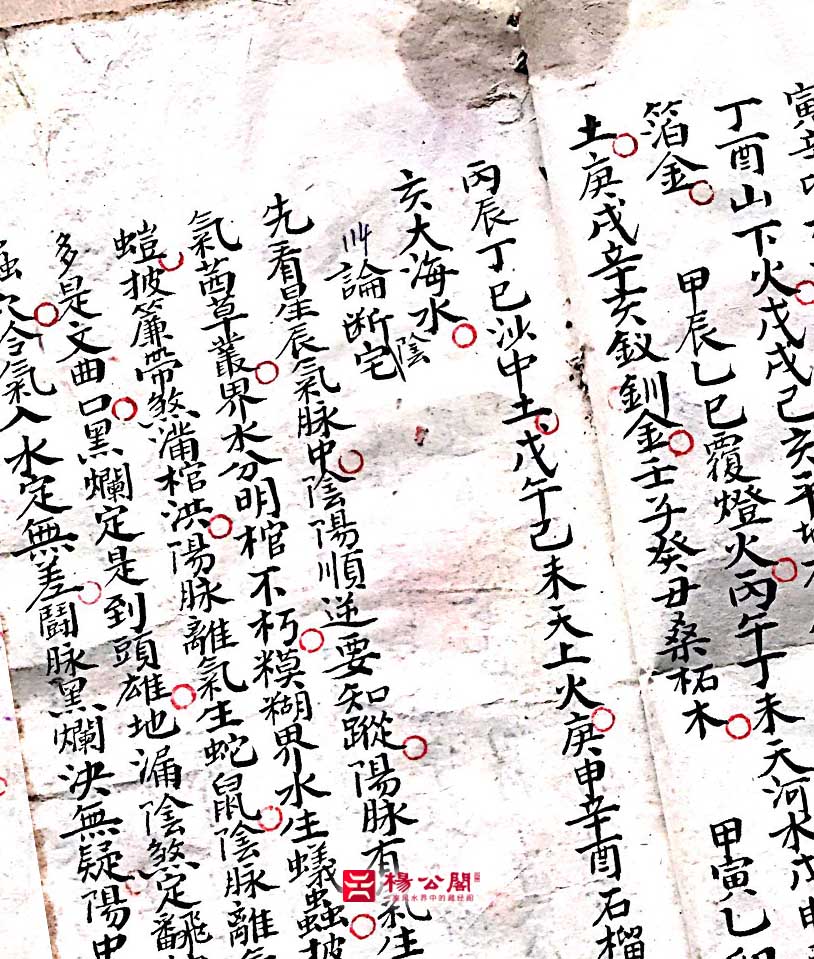 寅辛卯
丁酉山下火戊戌己亥平地木
箔金 甲辰乙巳覆燈火丙午丁未天河水戊申
土庚戌辛亥釵釧金壬子癸丑桑柘木 甲寅乙卯
丙辰丁巳沙中土戊午己未天上火庚申辛酉石榴
亥大海水
114 論断宅陰
先看星辰氣脉中陰陽順逆要知蹤陽脉有氣生
氣茜草叢界水分明棺不朽糢糊界水生蟻蟲披
螘披簾帶煞滿棺洪陽脉離氣生蛇鼠陰脉離氣
多是文曲口黑爛定是到頭雄地漏陰煞定翻
令氣入水定無差鬪脉黑爛決無疑陽中
楊公閣